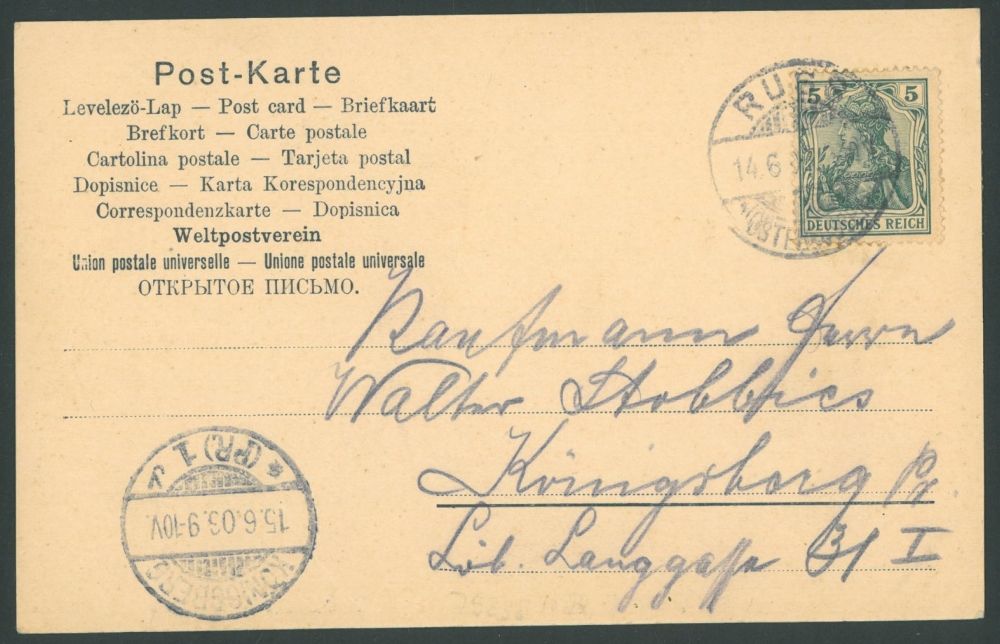 Post-Karte
Levelezö-Lap — Post card — Briefkaart
Brefkort — Carte postale
Cartolina postale — Tarjeta postal
Dopisnice — Karta Korespondencyjna
Correspondenzkarte — Dopisnica
Weltpostverein
Union postale universelle — Unione postale universale
ОТКРЫТОЕ ПИСЬМО.
RUSS
14.6
5 5
DEUTSCHES REICH
Kaufmann Herrn
Walter
Königsberg Pr.
Löb. Langgasse I
* (PR) 1
15.6.03.9-10V.
KÖNIGSBERG